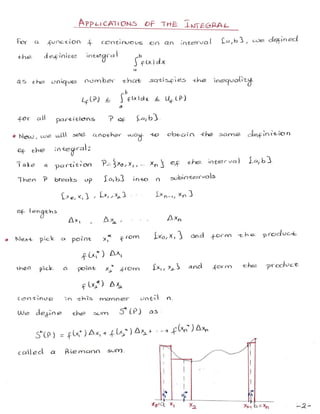 APPLICATIONS OF THE INTEGRAL
For a function f continuous on an interval [a,b], we defined
the definite integral ∫ₐᵇ f(x)dx
as the unique number that satisfies the inequality
L_f(P) ≤ ∫ₐᵇ f(x)dx ≤ U_f(P)
for all partitions P of [a,b].
• Now, we will see another way to obtain the same definition
of the integral:
Take a partition P={x₀, x₁, ... xₙ} of the interval [a,b]
Then P breaks up [a,b] into n subintervals
[x₀, x₁], [x₁, x₂] ... [xₙ₋₁, xₙ]
of lengths
Δx₁ , Δx₂ , Δxₙ
• Next pick a point x₁* from [x₀, x₁] and form the product
f(x₁*) Δx₁
then pick a point x₂* from [x₁, x₂] and form the product
f(x₂*) Δx₂
continue in this manner until n.
We define the sum S*(P) as
S*(P) = f(x₁*)Δx₁ + f(x₂*)Δx₂ + ... + f(xₙ*)Δxₙ
called a Riemann sum.
x₀=a x₁ x₂ xₙ₋₁ b=xₙ
-2-